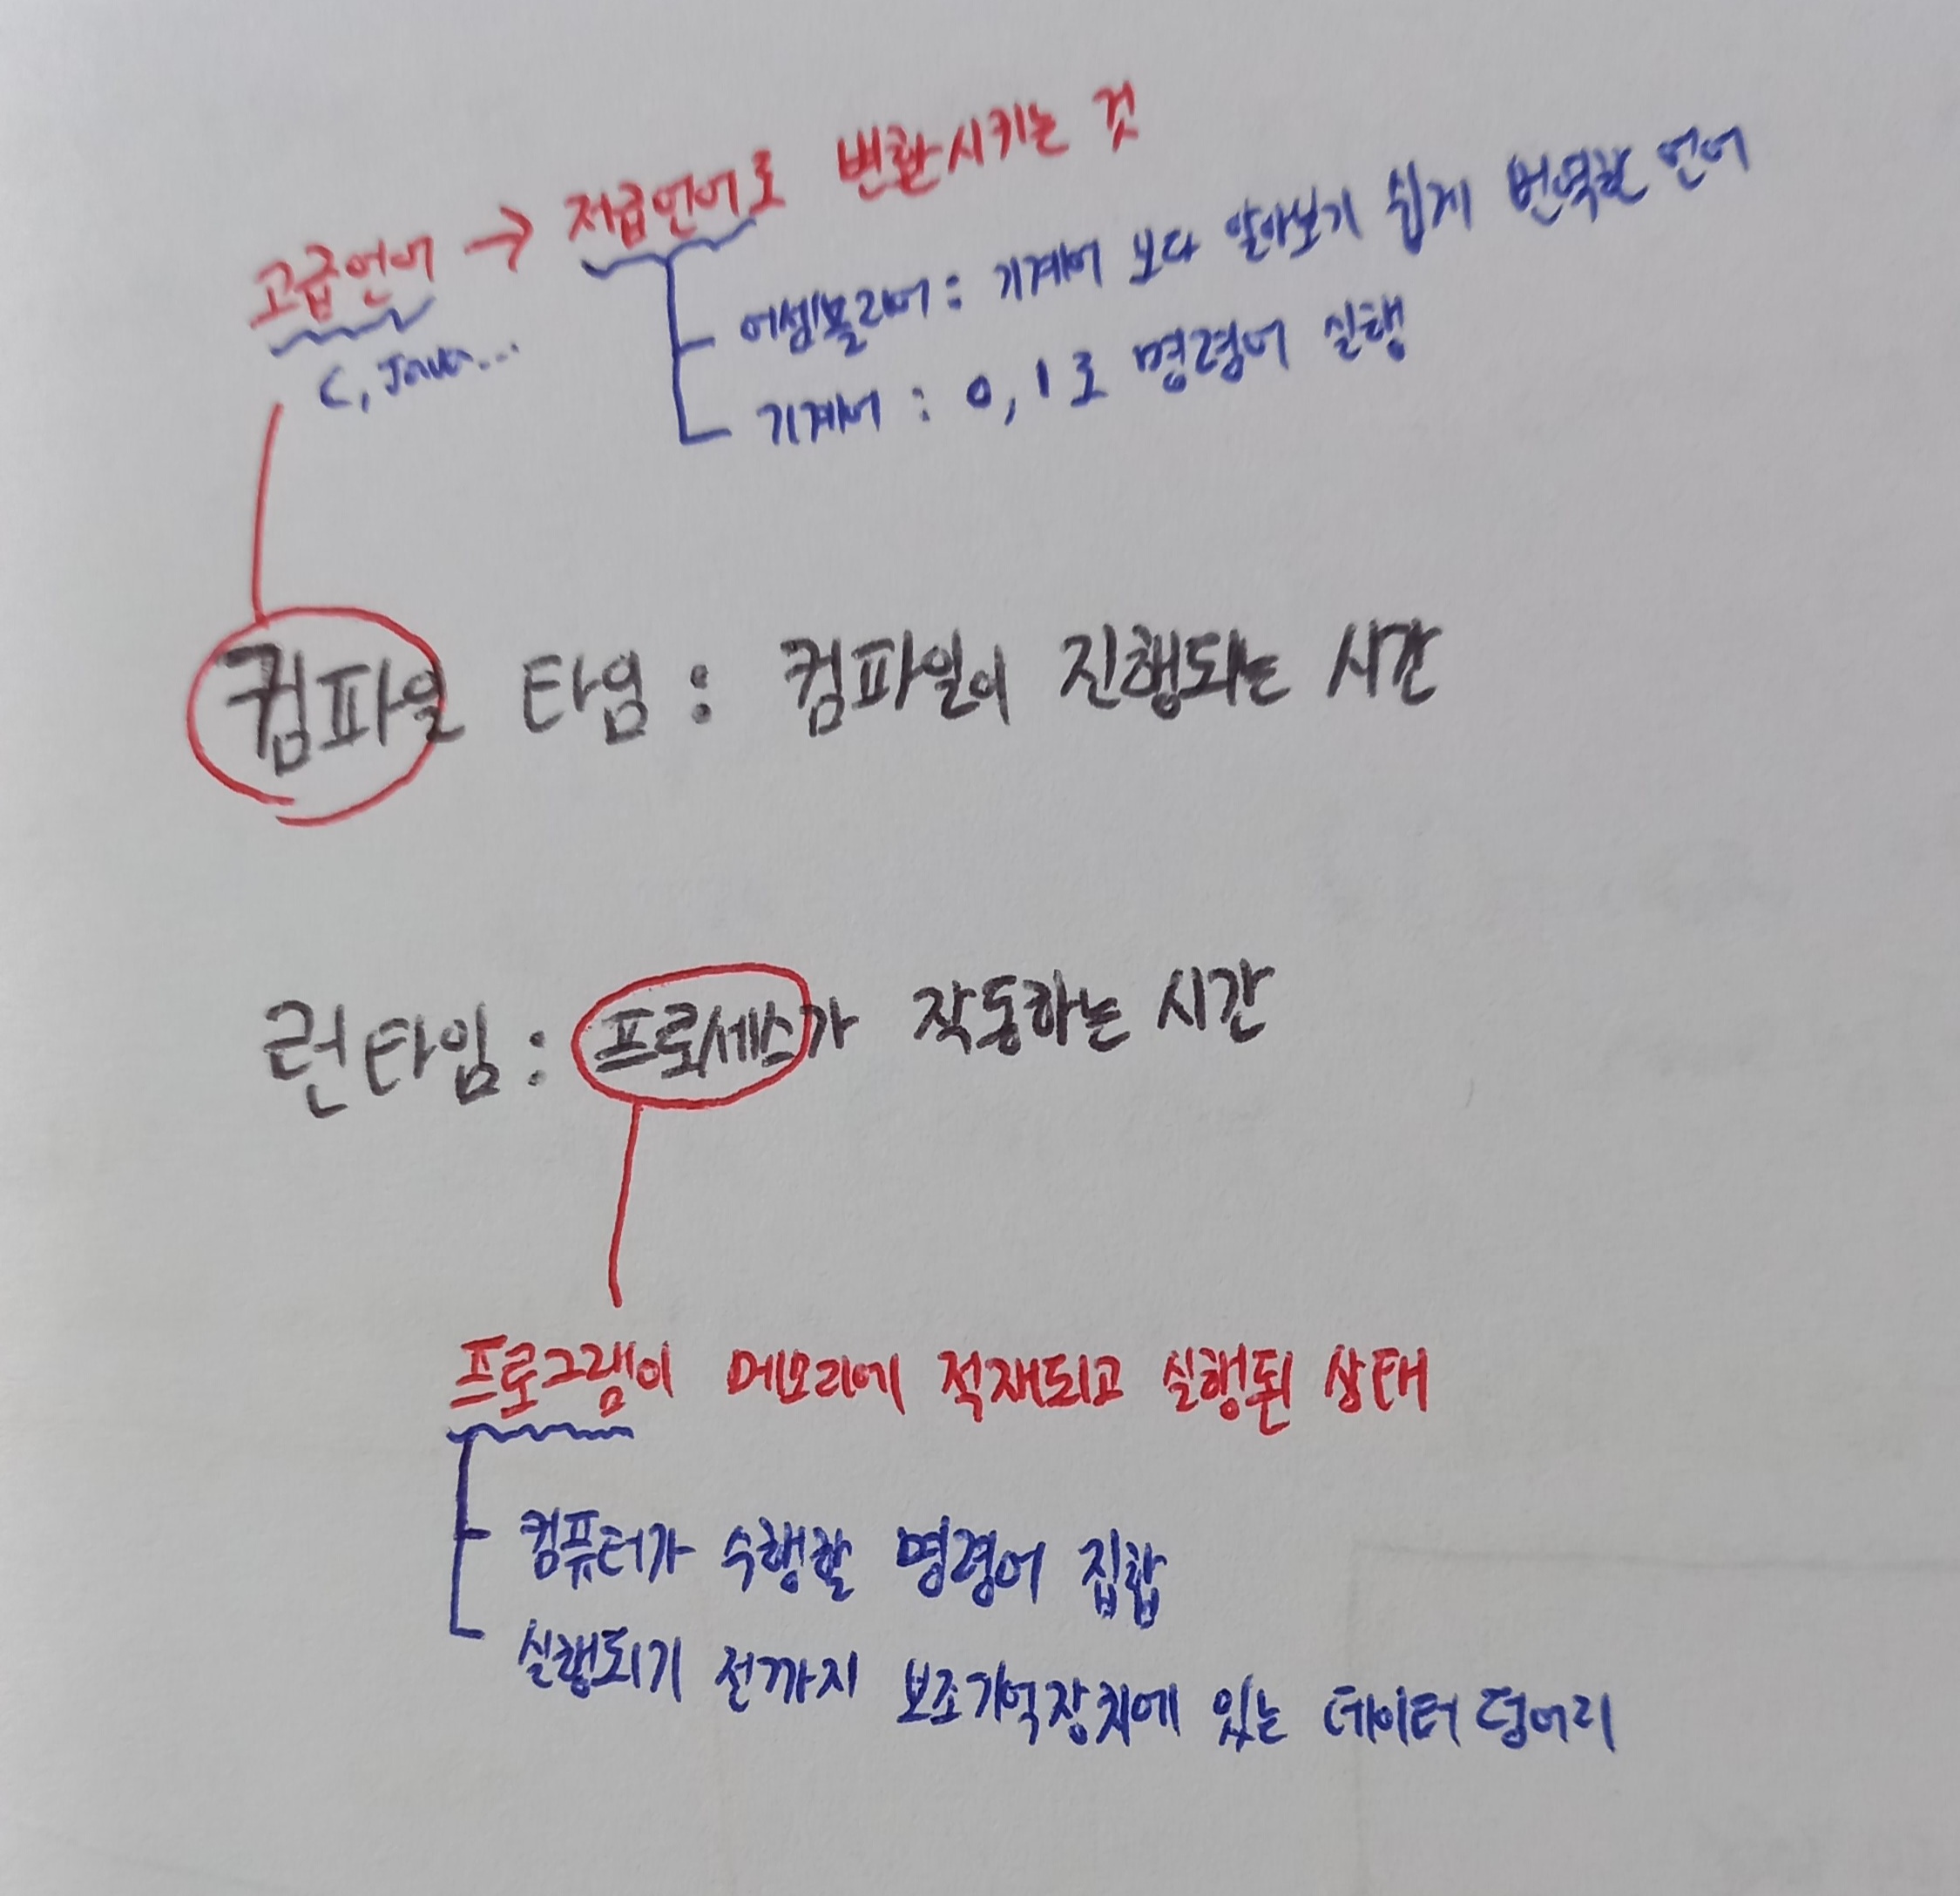 고급언어 → 저급언어로 변환시키는 것
C, Java...
어셈블리어 : 기계어 보다 알아보기 쉽게 번역한 언어
기계어 : 0, 1로 명령어 실행
컴파일 타임 : 컴파일이 진행되는 시간
런타임 : 프로세스가 작동하는 시간
프로그램이 메모리에 적재되고 실행된 상태
컴퓨터가 수행할 명령어 집합
실행되기 전까지 보조기억장치에 있는 데이터 덩어리